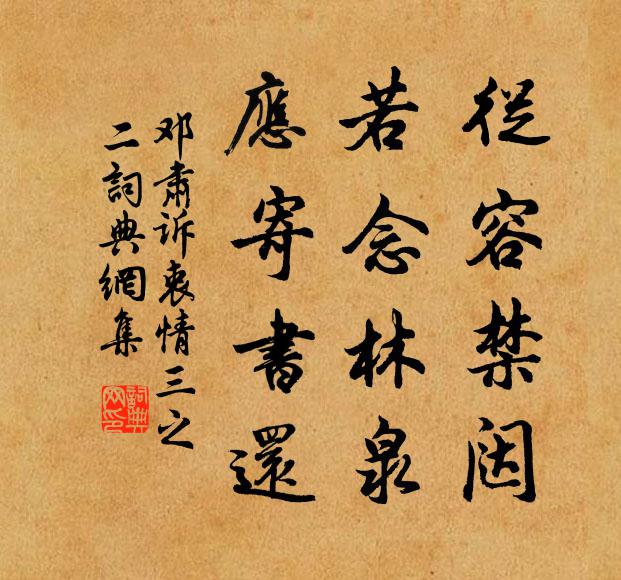 從容禁闼
若念林泉
應寄書還
邓肃诉衷情三之
二詞典網集
詞典
网印